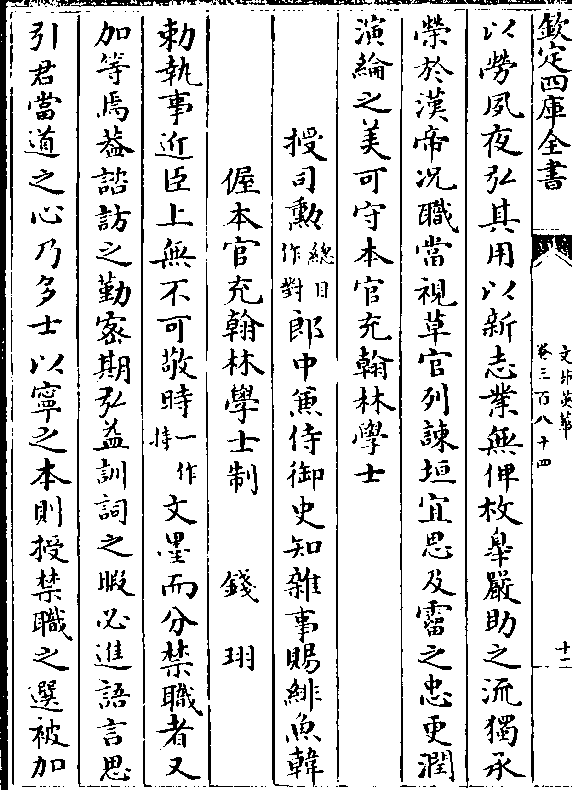 欽定四庫全書
文苑英華
卷三百八十四
十二
以勞夙夜弘其用以新志業無俾枚臯嚴助之流獨承
榮於漢帝况職當視草官列諫垣宜思及霤之忠更潤
演綸之美可守本官充翰林學士
授司勲總目作對郎中兼侍御史知雜事賜緋魚韓
偓本官充翰林學士制 錢珝
勅執事近臣上無不可敬時一作持文墨而分禁職者又
加等焉葢諮訪之勤宻期弘益訓詞之暇必進語言思
引君當道之心乃多士以寧之本則授禁職之選被加